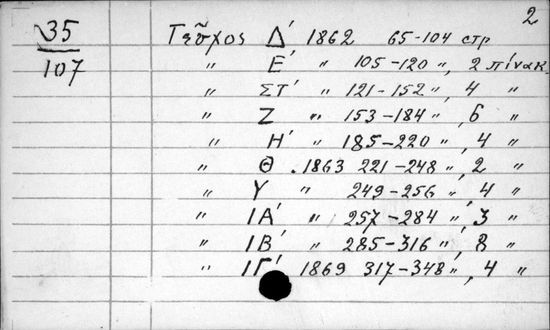 2
35
107
Τεῦχος Δ' 1862 65-104 στρ
" Ε' " 105-120 ", 2 πίνακ
" ΣΤ' " 121-152 ", 4 "
" Ζ " 153-184 ", 6 "
" Η' " 185-220 ", 4 "
" Θ . 1863 221-248 ", 2 "
" Υ " 249-256 ", 4 "
" ΙΑ' " 257-284 ", 3 "
" ΙΒ' " 285-316 ", 8 "
" ΙΓ' 1869 317-348 ", 4 "